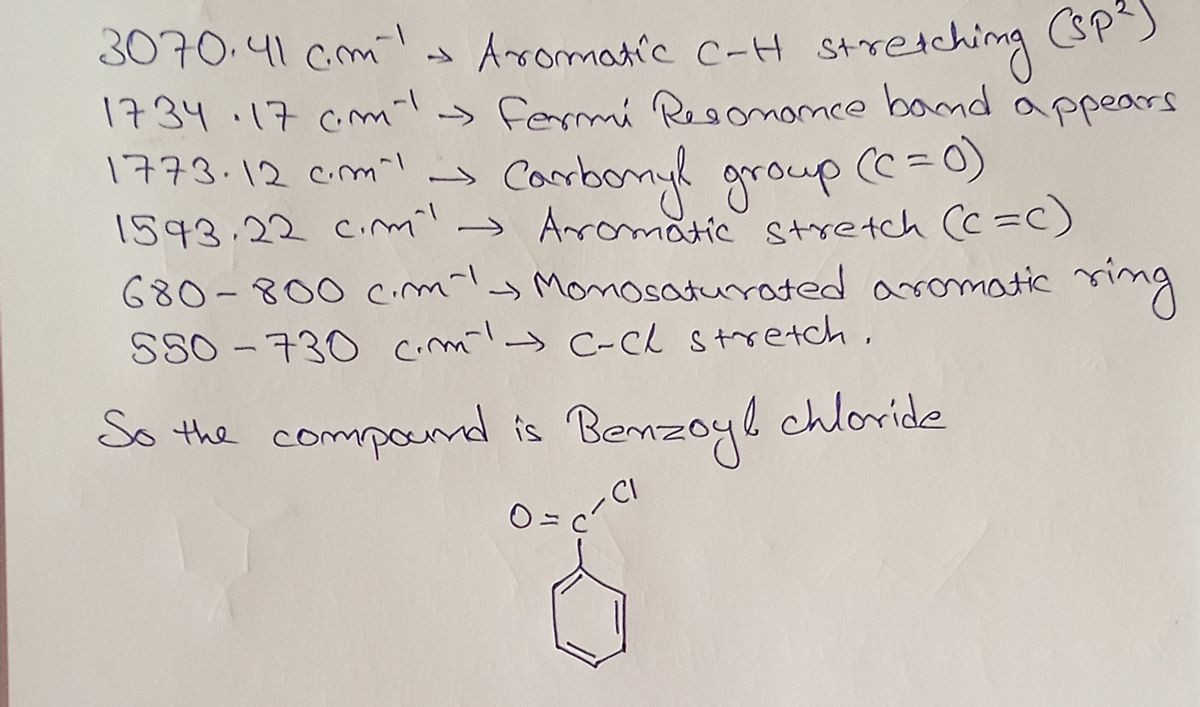 3070.41 c.m⁻¹ → Aromatic C-H stretching (sp²)
1734.17 c.m⁻¹ → Fermi Resonance band appears
1773.12 c.m⁻¹ → Carbonyl group (C=O)
1593.22 c.m⁻¹ → Aromatic stretch (C=C)
680-800 c.m⁻¹ → Monosaturated aromatic ring
550-730 c.m⁻¹ → C-Cl stretch.
So the compound is Benzoyl chloride
Cl
O=C